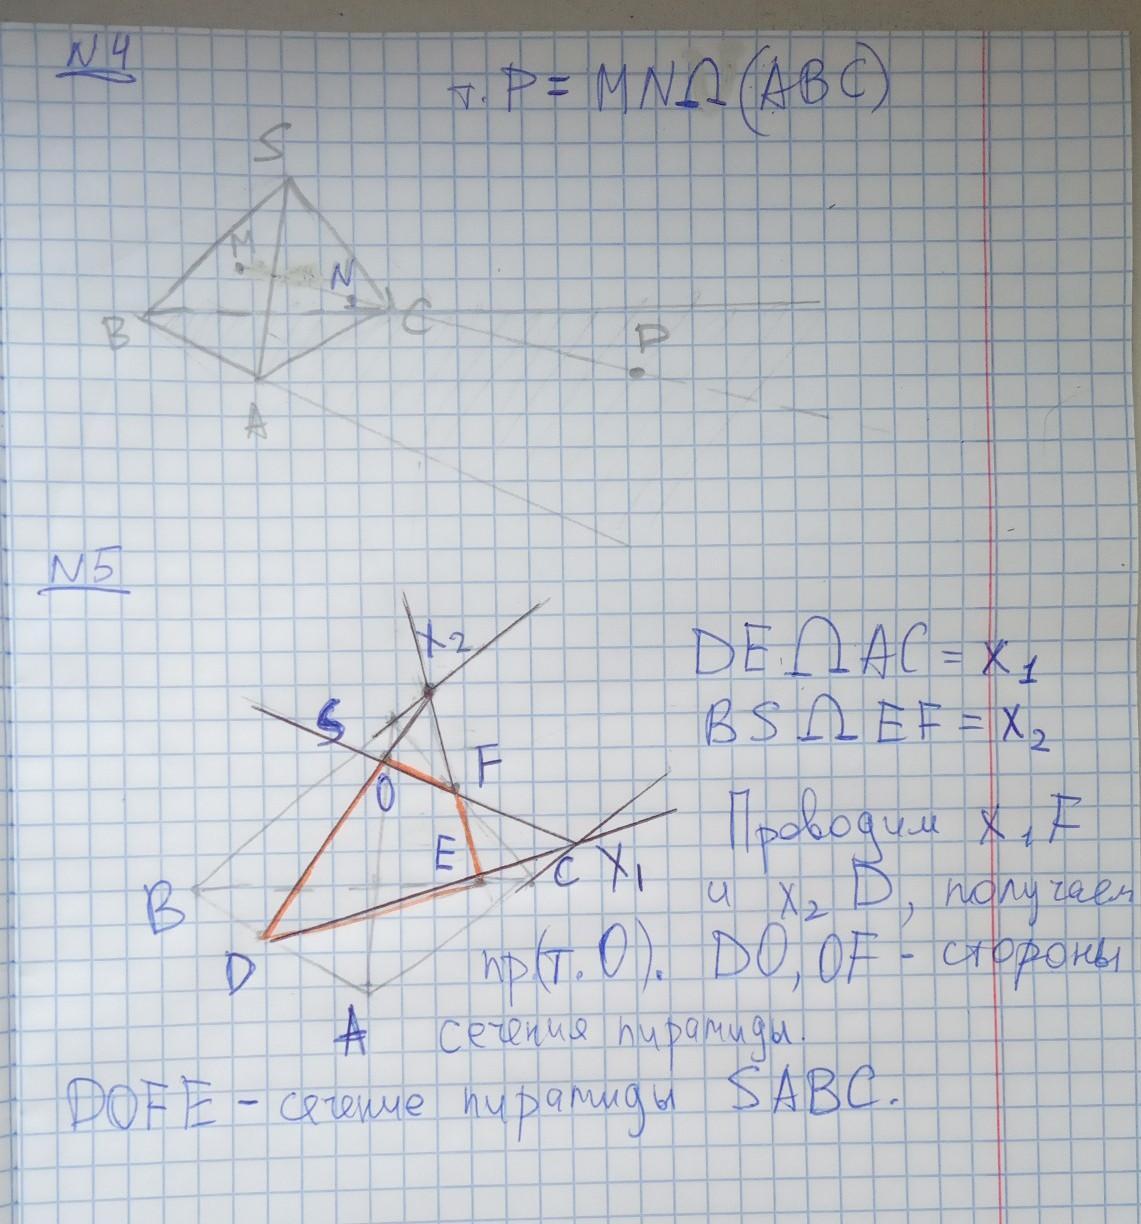 N4
т. P = MN∩(ABC)
S
M
N
B
C
P
A
N5
X₂
DE∩AC = X₁
S
BS∩EF = X₂
F
O
Проводим X₁F
E
C X₁
и X₂D, получаем
B
D
пр(т. O). DO, OF - стороны
A
сечения пирамиды.
DOFE - сечение пирамиды SABC.